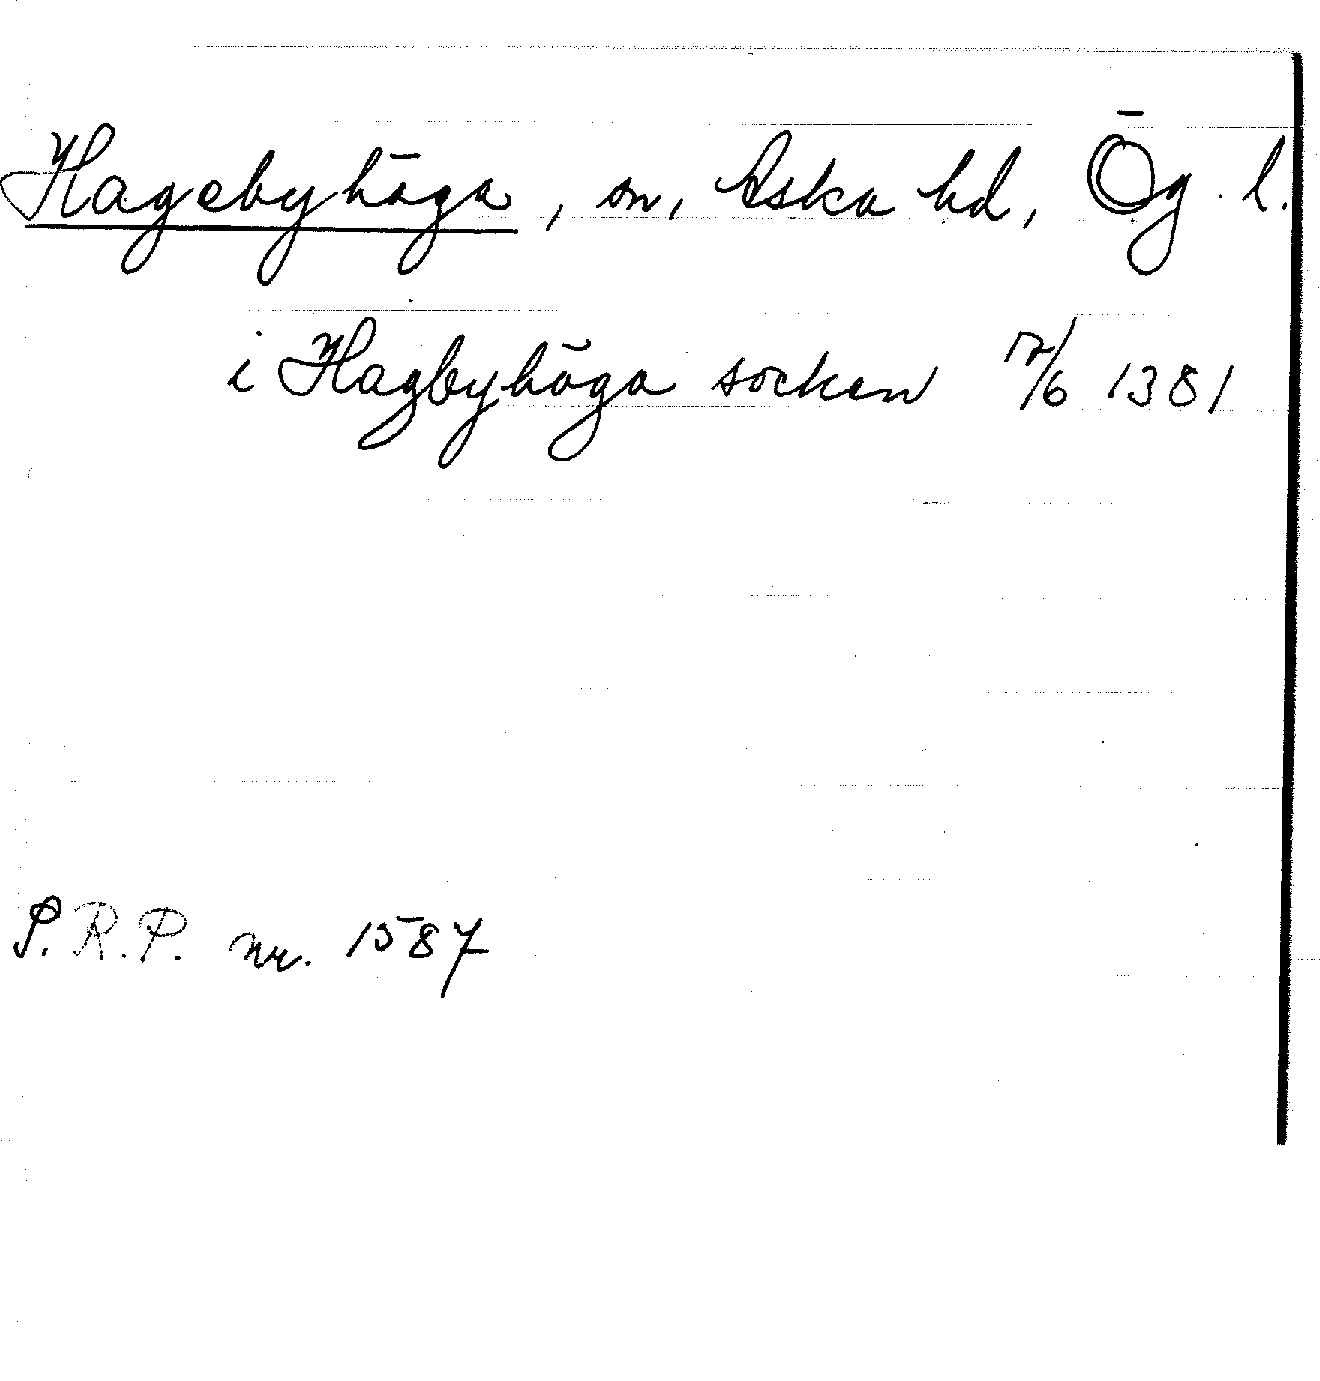 Hagebyhöga, sn, Aska hd, Ög. l.
i Hagbyhöga socken 7/6 1381
S.R.P. nr. 1587